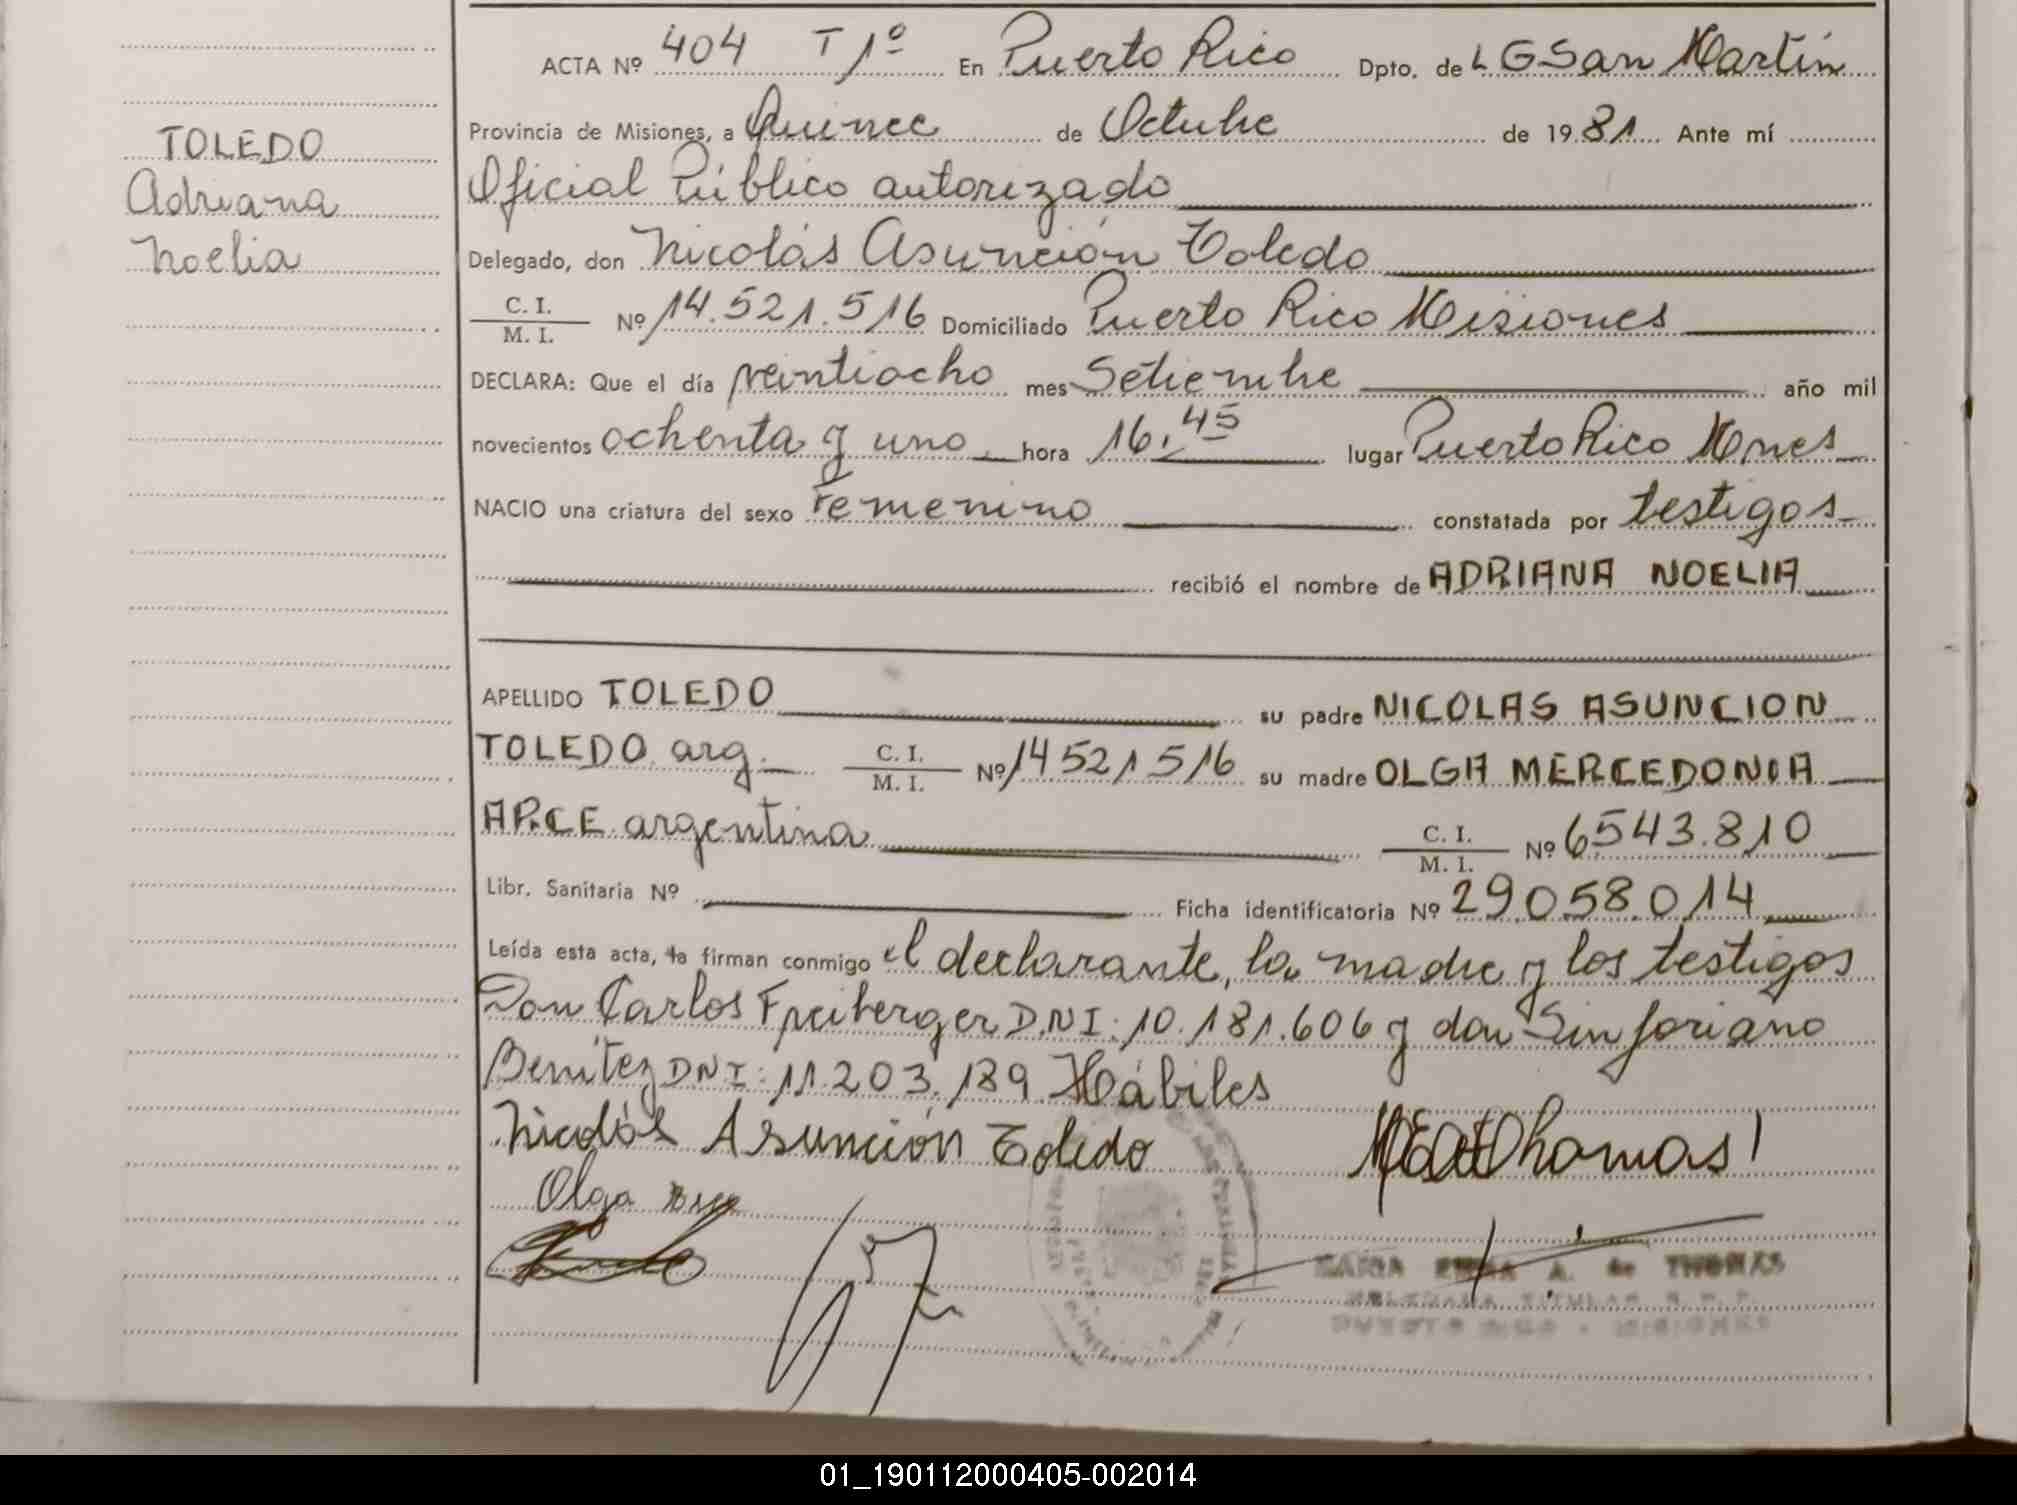 ACTA Nº 404 T 1º En Puerto Rico Dpto. de L G San Martín
TOLEDO
Adriana
Noelia
Provincia de Misiones, a Quince de Octubre de 1981 Ante mí
Oficial Público autorizado
Delegado, don Nicolás Asunción Toledo
C. I.
M. I.
Nº 14.521.516 Domiciliado Puerto Rico Misiones
DECLARA: Que el día veintiocho mes Setiembre año mil
novecientos ochenta y uno hora 16.45 lugar Puerto Rico Mnes
NACIO una criatura del sexo Femenino constatada por testigos
recibió el nombre de ADRIANA NOELIA
APELLIDO TOLEDO su padre NICOLAS ASUNCION
TOLEDO arg. C. I. M. I. Nº 14521516 su madre OLGA MERCEDONIA
ARCE argentina C. I. M. I. Nº 6543.810
Libr. Sanitaria Nº Ficha identificatoria Nº 29.058.014
Leída esta acta, la firman conmigo el declarante, la madre y los testigos
Don Carlos Freiberger D.N.I: 10.181.606 y don Sinforiano
Benítez DNI: 11.203.189 Hábiles
Nicolás Asunción Toledo
Olga
MARIA EMMA A. de THOMAS
PUERTO RICO - MISIONES
01_190112000405-002014